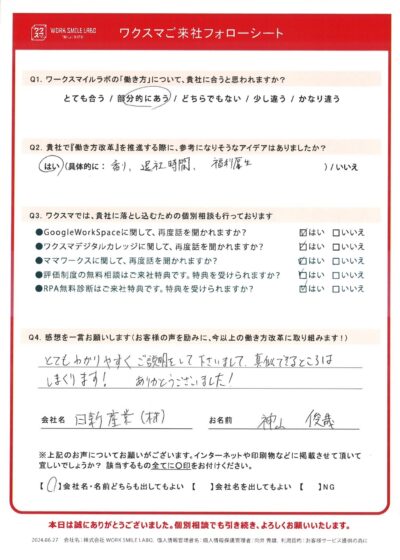 ワクスマ
WORK SMILE LABO
ワクスマご来社フォローシート
Q1. ワークスマイルラボの「働き方」について、貴社に合うと思われますか?
とても合う / 部分的にあう / どちらでもない / 少し違う / かなり違う
Q2. 貴社で『働き方改革』を推進する際に、参考になりそうなアイデアはありましたか?
はい (具体的に: 香り、退社時間、福利厚生 ) / いいえ
Q3. ワクスマでは、貴社に落とし込むための個別相談も行っております
●GoogleWorkSpaceに関して、再度話を聞かれますか? ☑はい □いいえ
●ワクスマデジタルカレッジに関して、再度話を聞かれますか? ☑はい □いいえ
●ママワークスに関して、再度話を聞かれますか? ☑はい □いいえ
●評価制度の無料相談はご来社特典です。特典を受けられますか? ☑はい □いいえ
●RPA無料診断はご来社特典です。特典を受けられますか? ☑はい □いいえ
Q4. 感想を一言お願いします(お客様の声を励みに、今以上の働き方改革に取り組みます!)
とてもわかりやすく ご説明をして下さいまして、真似できるところは
しまくります! ありがとうございました!
会社名 日新産業(株) お名前 神山 俊哉
※上記のお声についてお願いがございます。インターネットや印刷物などに掲載させて頂いて
宜しいでしょうか? 該当するもの全てに〇印をお付けください。
【〇】会社名・名前どちらも出してもよい 【 】会社名を出してもよい 【 】NG
本日は誠にありがとうございました。個別相談でも引き続き、よろしくお願いいたします。
2024.06.27 会社名:株式会社 WORK SMILE LABO、個人情報管理者名:個人情報保護管理者:向井 秀雄 利用目的:お客様サービス提供の為に